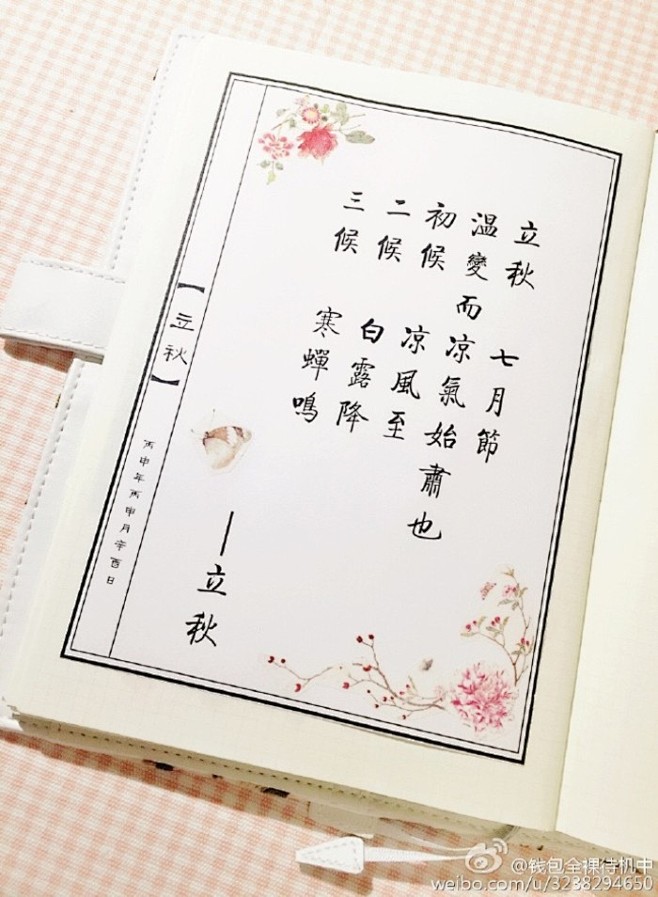 立秋 七月節
温變而凉氣始肅也
初候 凉風至
二候 白露降
三候 寒蟬鳴
—立秋
【立秋】
丙申年丙申月辛酉日
@钱包全裸待机中
weibo.com/u/3238294650